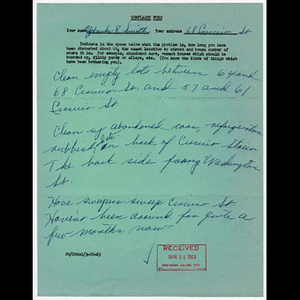 COMPLAINT FORM
Your name R. Smith Your address 68 St.
Indicate in the space below what the problem is, how long you have
been disturbed about it, the exact location by street and house number of
where it is. For example, abandoned cars, vacant houses which should be
boarded up, filthy yards or alleys, etc. (You know the kinds of things which
have been bothering you).
Clean empty lots between 64 and
68 St. and 57 and 61
St.
Clean up abandoned cars, refrigerators
rubbish, Etc. in back of
The back side facing Washington
St.
Have sweepers sweep St.
Haven't been around for quite a
few months now
RECEIVED
MAR 1963